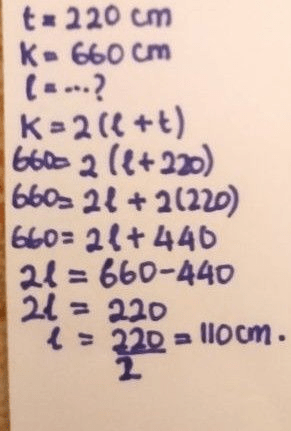 t = 220 cm
K = 660 cm
l = ...?
K = 2(l + t)
660 = 2 (l + 220)
660 = 2l + 2(220)
660 = 2l + 440
2l = 660 - 440
2l = 220
l = 220/2 = 110 cm.